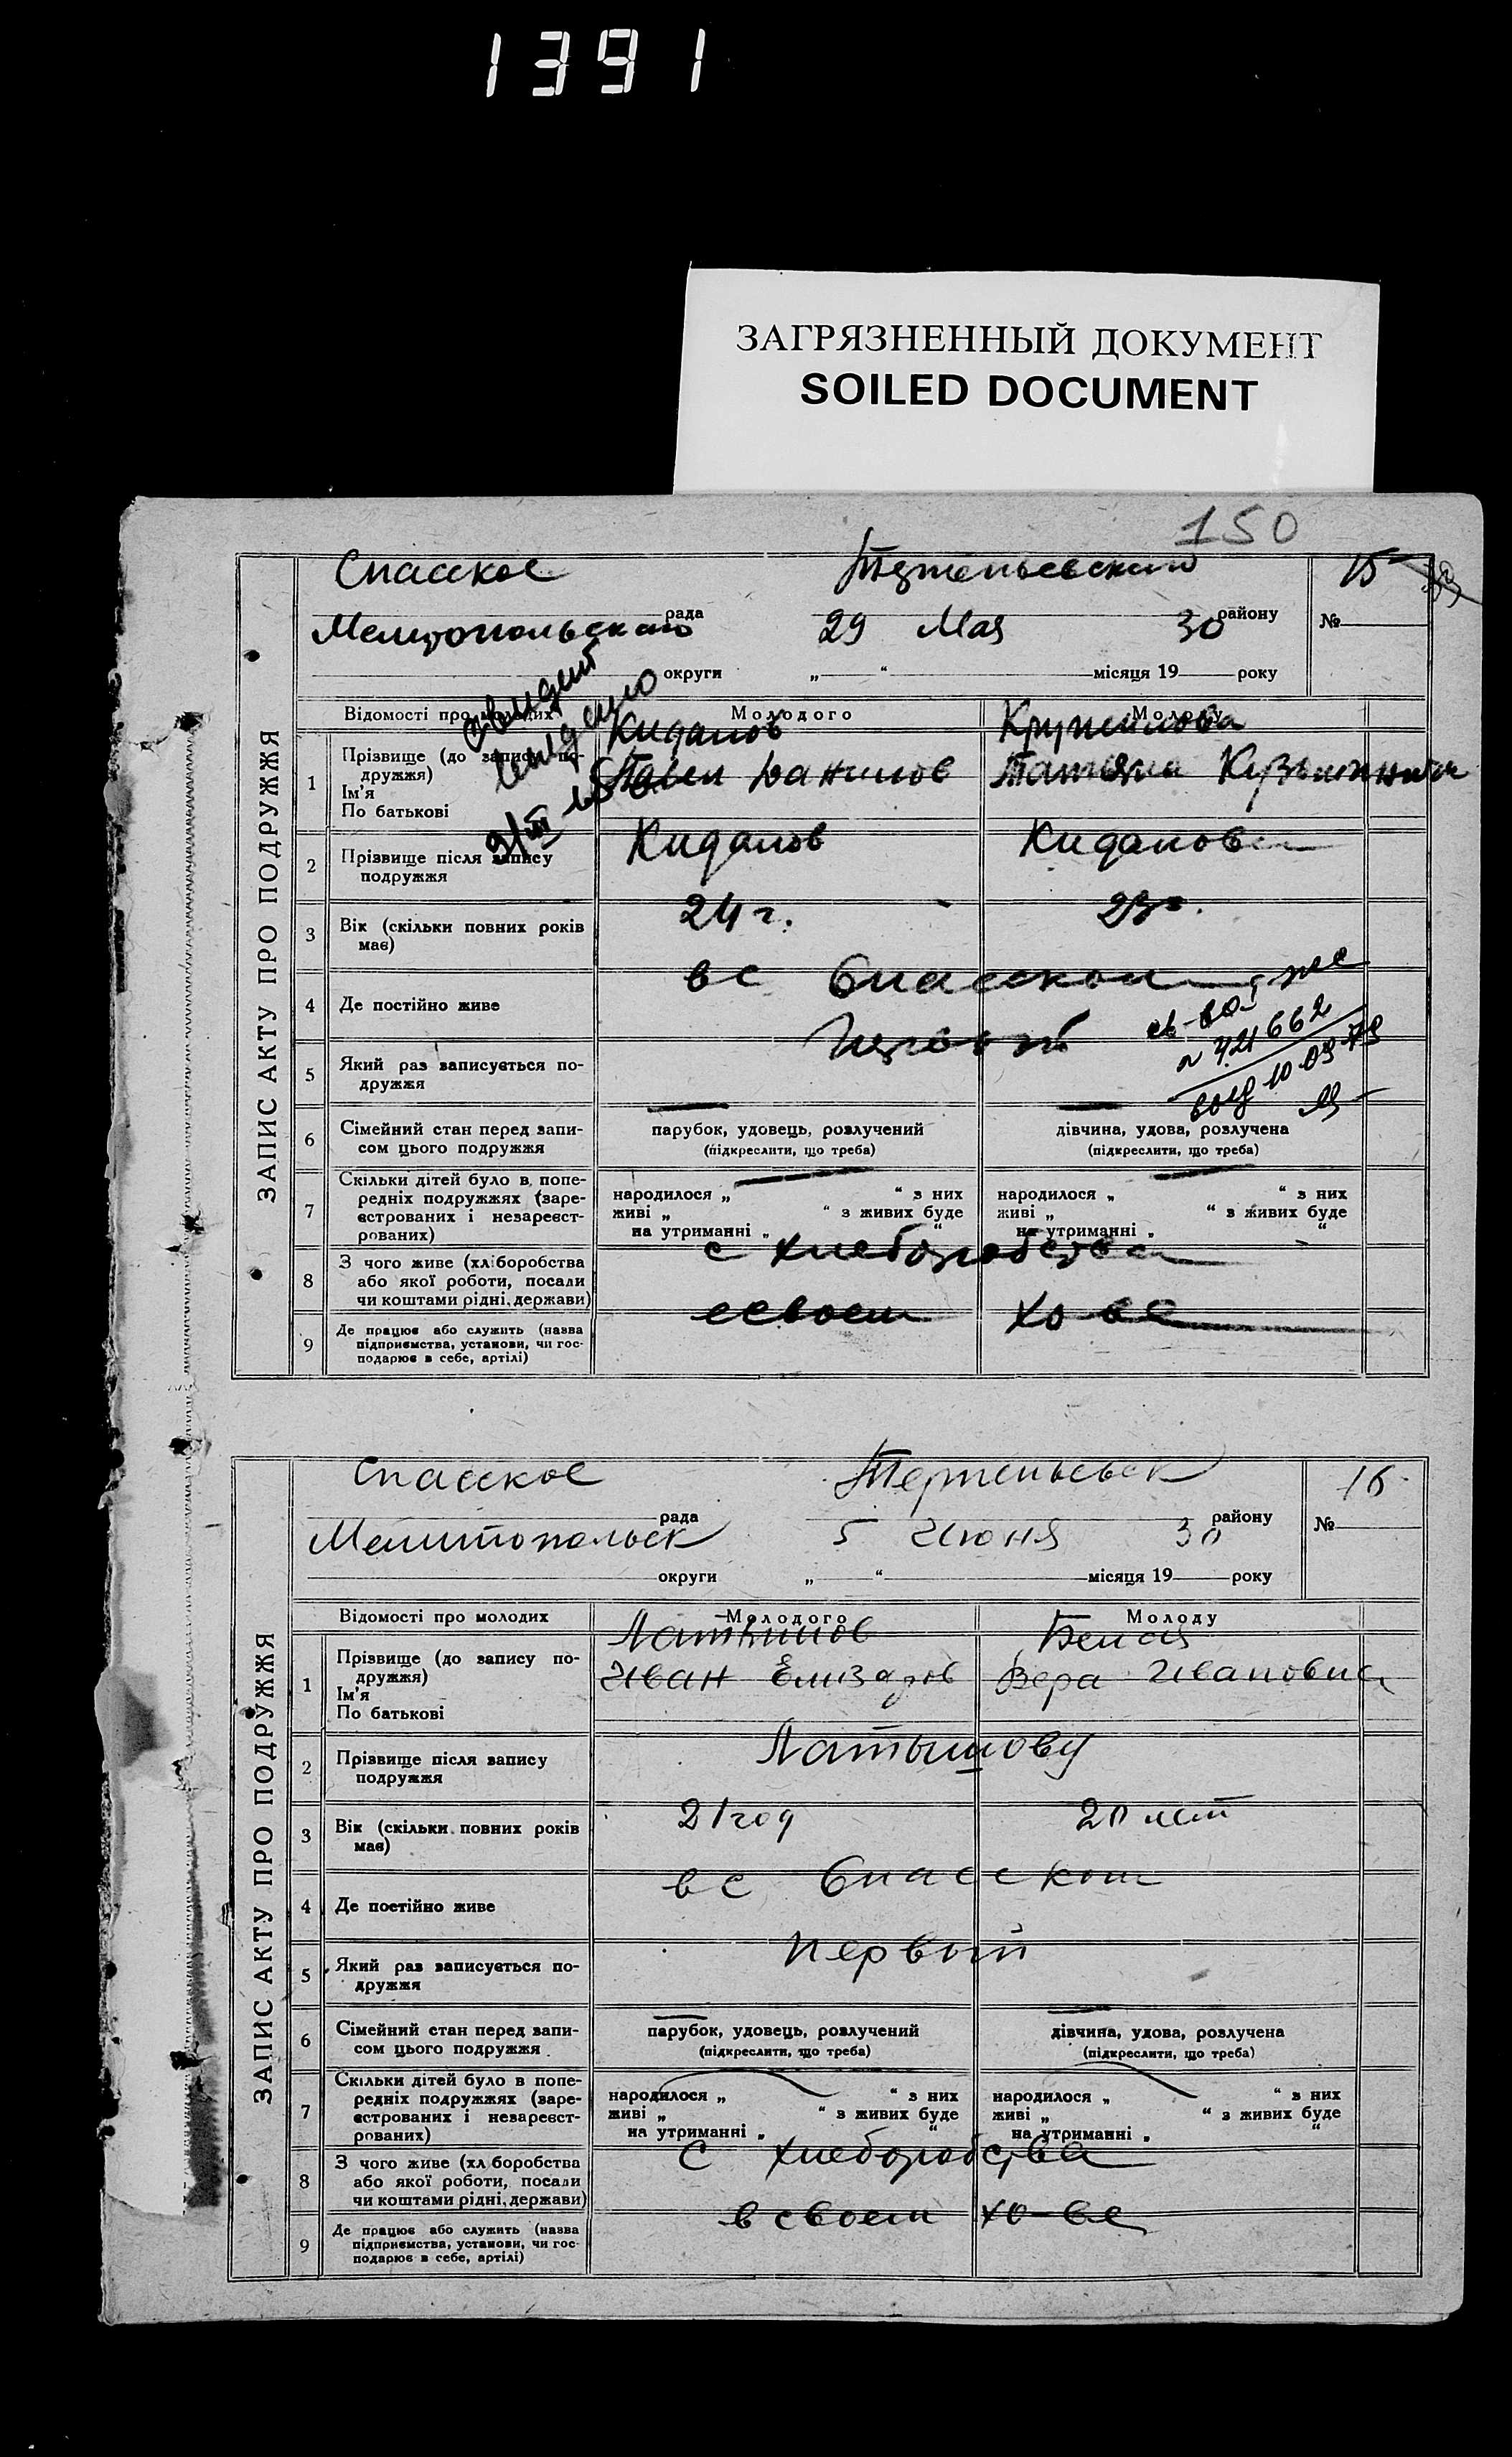 1391
ЗАГРЯЗНЕННЫЙ ДОКУМЕНТ
SOILED DOCUMENT
150
ЗАПИС АКТУ ПРО ПОДРУЖЖЯ
Спасское рада
Мелитопольский округи
29 Мая місяця 1930 року
району
№ 15
Відомості про молодих
Молодого
Молоду
1 Прізвище (до запису по-
дружжя)
Ім'я
По батькові
Киданов
Павел Данилов
Татьяна
2 Прізвище після запису
подружжя
Киданов
Киданов
3 Вік (скільки повних років
має)
24 г.
23 г.
4 Де постійно живе
в с Спасском
5 Який раз записується по-
дружжя
св-во
N 421662
10 09 79
6 Сімейний стан перед запи-
сом цього подружжя
парубок, удовець, розлучений
(підкреслити, що треба)
дівчина, удова, розлучена
(підкреслити, що треба)
7 Скільки дітей було в попе-
редніх подружжях (заре-
єстрованих і незареєст-
рованих)
народилося „ “ з них
живі „ “ з живих буде
на утриманні „ “
народилося „ “ з них
живі „ “ з живих буде
на утриманні „ “
8 З чого живе (хліборобства
або якої роботи, посади
чи коштами рідні, держави)
с хлеборобства
9 Де працює або служить (назва
підприємства, установи, чи гос-
подарює в себе, артілі)
в своем хо-ве
ЗАПИС АКТУ ПРО ПОДРУЖЖЯ
Спасское рада
Мелитопольск округи
району
5 Июня місяця 1930 року
№ 16
Відомості про молодих
Молодого
Молоду
1 Прізвище (до запису по-
дружжя)
Ім'я
По батькові
Латышов
Иван Елизаров
Белая
Вера Ивановна
2 Прізвище після запису
подружжя
Латышовы
3 Вік (скільки повних років
має)
21 год
20 лет
4 Де постійно живе
в с Спасском
5 Який раз записується по-
дружжя
первый
6 Сімейний стан перед запи-
сом цього подружжя
парубок, удовець, розлучений
(підкреслити, що треба)
дівчина, удова, розлучена
(підкреслити, що треба)
7 Скільки дітей було в попе-
редніх подружжях (заре-
єстрованих і незареєст-
рованих)
народилося „ “ з них
живі „ “ з живих буде
на утриманні „ “
народилося „ “ з них
живі „ “ з живих буде
на утриманні „ “
8 З чого живе (хліборобства
або якої роботи, посади
чи коштами рідні, держави)
с хлеборобства
9 Де працює або служить (назва
підприємства, установи, чи гос-
подарює в себе, артілі)
в своем хо-ве